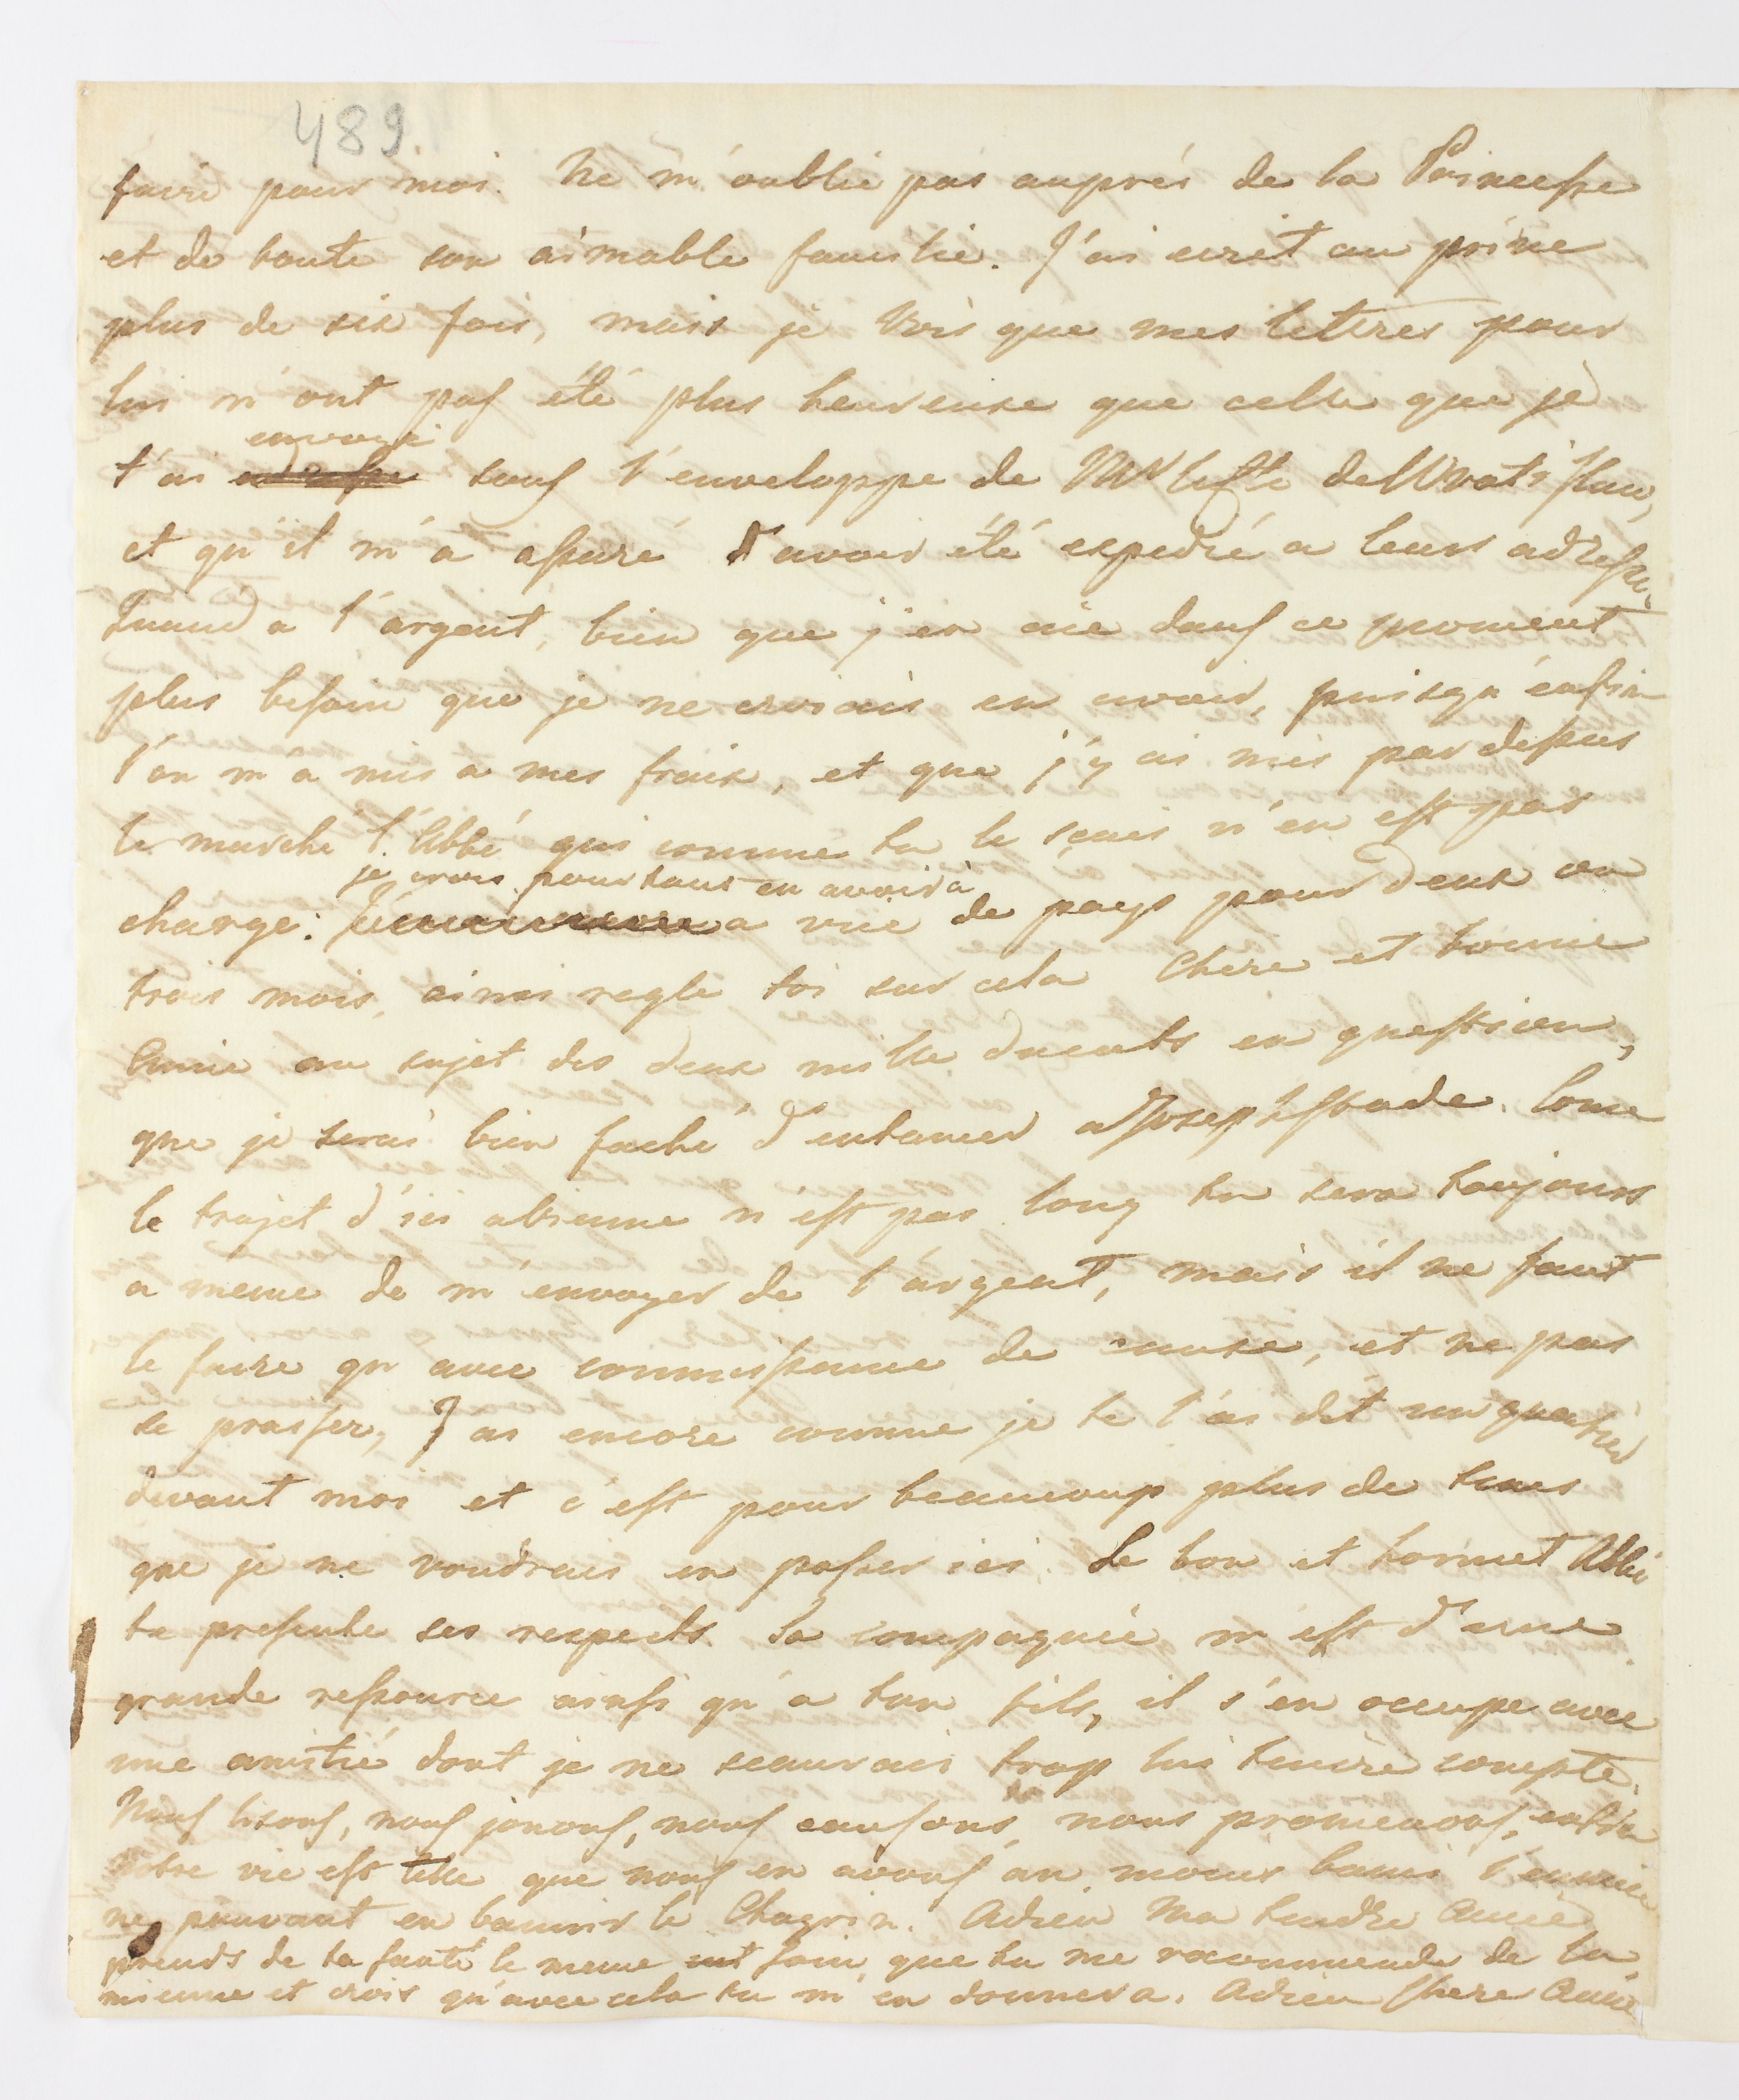 489.
faire pour moi. Ne m'oublie pas auprés de la Princesse
et de toute son aimable famille. J'ai ecrit au prince
plus de six fois, mais je vois que mes lettres pour
lui n'ont pas été plus heureuse que celle que je
envoyé
t'ai adressé sous l'enveloppe de de Wratislaw,
et qu'il m'a assuré d'avoir été expedié a leurs adresse,
Quand a l'argent, bien que j'en aie dans ce moment
plus besoin que je ne croiais en avoir, puisqu'enfin
l'on m'a mis a mes frais, et que j'y ai mis par dessus
le marché l'Abbé qui comme tu le sçais n'en est pas
je crois pourtant en avoir à
chargé: a vüe de pays pour deux ou
trois mois, ainsi regle toi sur cela Chere et bonne
Amie au sujet des deux mille ducats en question,
que je serai bien faché d'entamer a Josephstadt. Come
le trajet d'ici a vienne n'est pas long tu sera toujours
a meme de m'envoyer de l'argent, mais il ne faut
le faire qu'avec connaissance de cause, et ne pas
se presser, J'ai encore comme je te l'ai dit un quartier
devant moi et c'est pour beaucoup plus de tems
que je ne voudrais en passer ici. Le bon et honnet Abbé
te presente ses respects. Sa compagnie m'est d'une
grande ressource ainsi qu'a ton fils, il s'en occupe avec
une amitié dont je ne scaurais trop lui tenire compte.
Nous lisons, nous jouons, nous causons, nous promenons, enfin
notre vie est telle que nous en avons au moins banni l'ennuie
ne pouvant en bannir le Chagrin. Adieu Ma tendre Amie
prends de ta santé le meme soin, que tu me recommende de la
mienne et crois qu'avec cela tu m'en donnera. Adieu Chere Amie